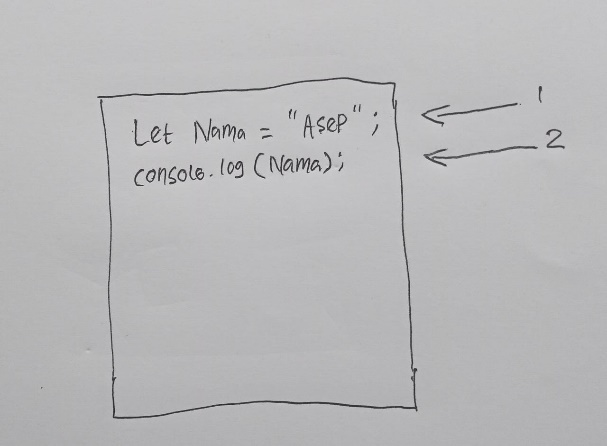 Let Nama = "Asep"; 1
console.log(Nama); 2